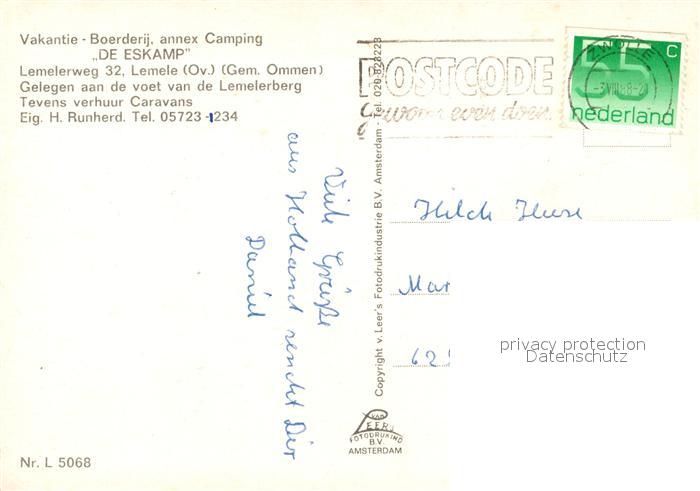 Vakantie - Boerderij, annex Camping
„DE ESKAMP"
Lemelerweg 32, Lemele (Ov.) (Gem. Ommen)
Gelegen aan de voet van de Lemelerberg
Tevens verhuur Caravans
Eig. H. Runherd. Tel. 05723-1234
Viele Grüße
aus Holland sendet Dir
Daniel
Nr. L 5068
Copyright v. Leer's Fotodrukindustrie B.V. Amsterdam - Tel. 020-828223
VAN
LEER'S
FOTODRUKIND
B.V.
AMSTERDAM
POSTCODE
Gewoon even doen.
ZWOLLE
55 c
nederland
Hilde
Mar
62
privacy protection
Datenschutz